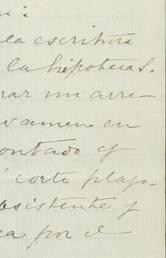 la escritura
la hipotecas.
rar mi arre-
vamen en
ontado y
corto plazo.
asistente y
ca por el